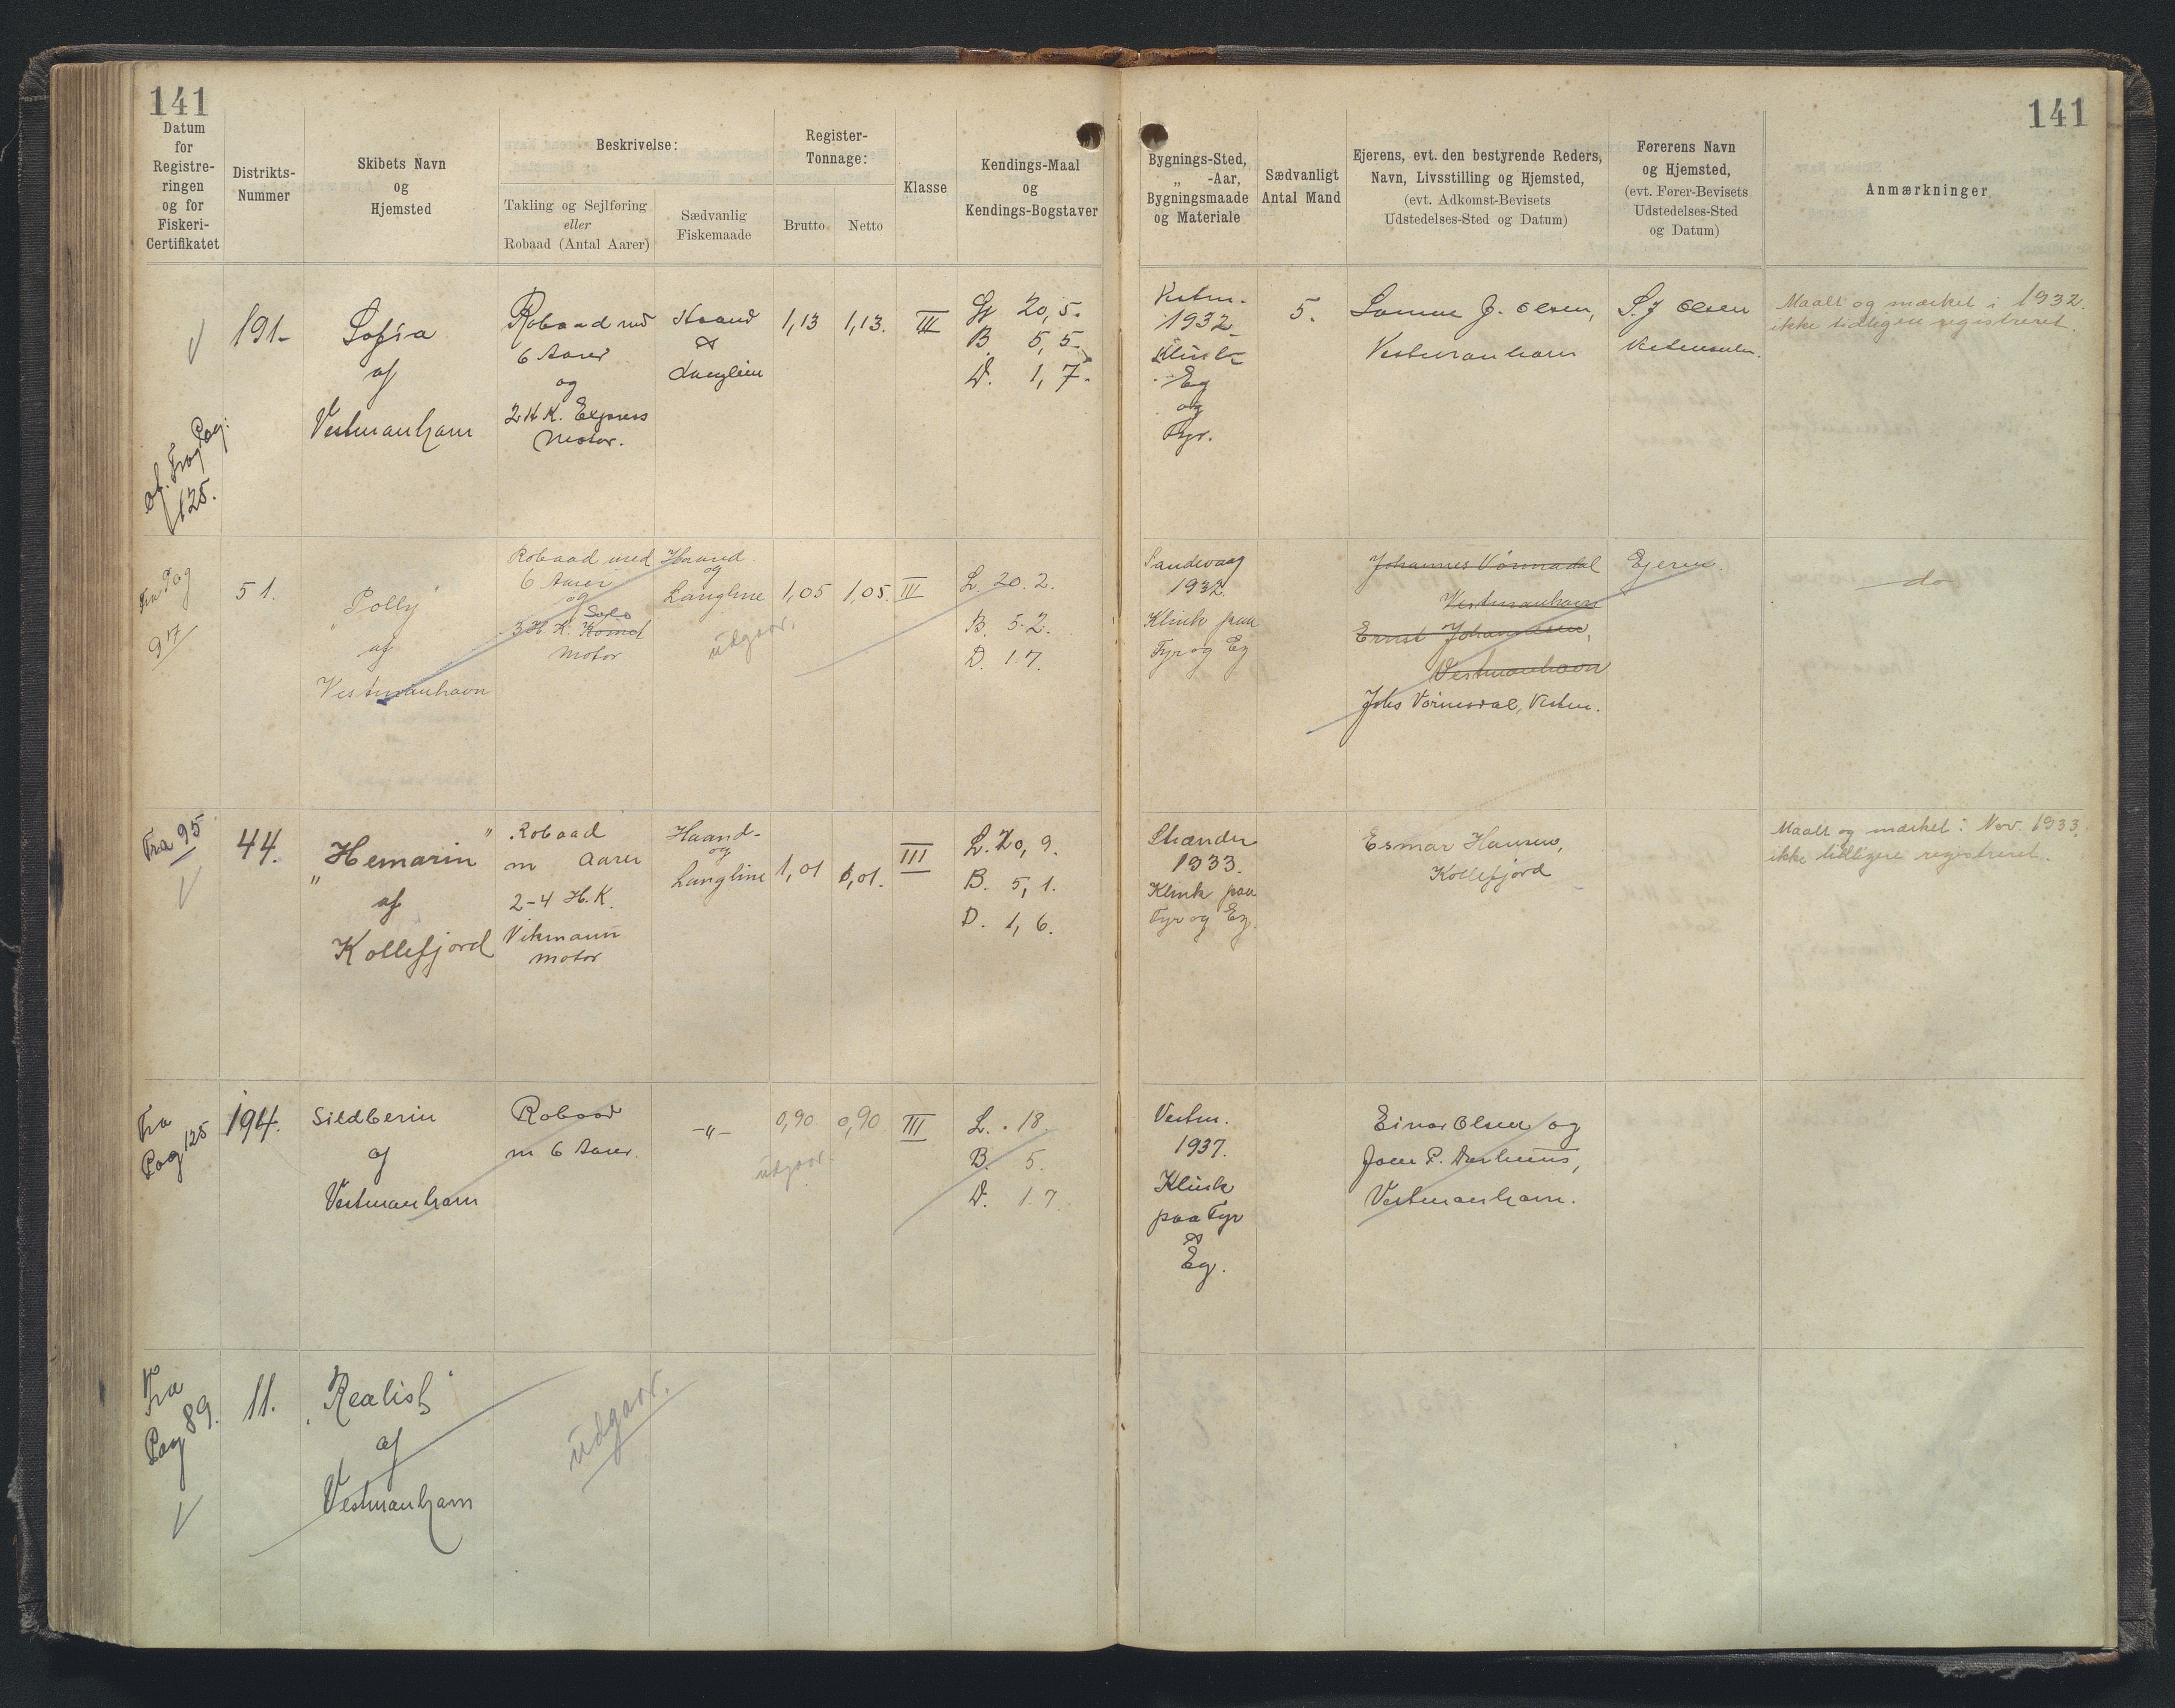 141
141
Datum
for
Registre-
ringen
og for
Fiskeri-
Certifikatet
Distrikts-
Nummer
Skibets Navn
og
Hjemsted
Beskrivelse:
Takling og Sejlføring
eller
Robaad (Antal Aarer)
Sædvanlig
Fiskemaade
Register-
Tonnage:
Brutto
Netto
Klasse
Kendings-Maal
og
Kendings-Bogstaver
Bygnings-Sted,
„ -Aar,
Bygningsmaade
og Materiale
Sædvanligt
Antal Mand
Ejerens, evt. den bestyrende Reders,
Navn, Livsstilling og Hjemsted,
(evt. Adkomst-Bevisets
Udstedelses-Sted og Datum)
Førerens Navn
og Hjemsted,
(evt. Fører-Bevisets
Udstedelses-Sted
og Datum)
Anmærkninger
Pag:
125.
191-
Sofia
af
Vestmanhavn
Robaad md
6 Aarer
og
2 H K. Express
Motor.
Haand
&
Langline
1,13
1,13.
III
Lg 20,5.
B. 5,5.
D. 1,7.
Vestm.
1932
Klink
Eg
og
Fyr.
5.
J. Olsen,
Vestmanhavn
S. J Olsen
Maalt og mærket i 1932.
ikke tidligere registreret.
Fra Pag
9 17
51.
„Polly"
af
Vestmanhavn
Robaad med
6 Aarer
og
Solo
3 H. K. Komet
Motor
Haand
og
Langline
udgaar.
1,05
1,05.
III
L. 20.2.
B. 5.2.
D. 1.7.
Sandevaag
1932.
Klink paa
Fyr og Eg
Johannes Vørmadal
Vestmanhavn
Ernst Johannesen,
Vestmanhavn
Johs Vørmadal, Vestm.
Ejeren.
do
Fra 95
44.
„Hemarin"
af
Kollefjord
Robaad
m Aarer
2-4 H.K.
Vikmann
Motor
Haand-
og
Langline
1,01
1,01.
III
L. 20,9.
B. 5,1.
D. 1,6.
Strænder
1933.
Klink paa
Fyr og Eg.
Esmar Hansen,
Kollefjord
Maalt og mærket i Nov. 1933.
ikke tidligere registreret.
Fra
Pag 125
194.
Sildberin
af
Vestmanhavn
Robaad
m 6 Aarer.
-"-
udgaar.
0,90
0,90
III
L. 18.
B. 5.
D. 1.7.
Vestm.
1937.
Klink
paa Fyr
&
Eg.
Einar Olsen og
P.
Vestmanhavn.
Fra
Pag 89.
11.
„Realist"
af
Vestmanhavn
udgaar.